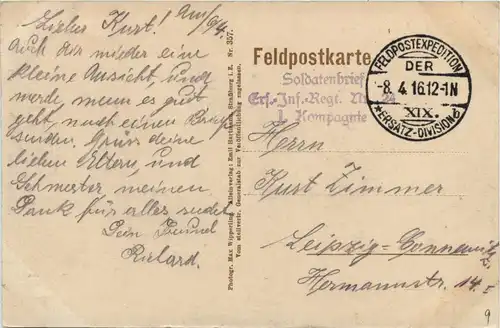 Lieber Kurt!
Auch Dir wieder eine
kleine Ansicht, und
werde, wenn es gut
geht, noch einen Brief
senden. Gruss deine
lieben Eltern, und
Schwester meinen
Dank für alles sendet
Dein Freund
Richard.
Photogr. Max Wipperling. Alleinverlag: Emil Hartmann, Straßburg i. E. Nr. 357.
Vom stellvertr. Generalstab zur Veröffentlichung zugelassen.
Feldpostkarte
Soldatenbrief
Ers.-Inf.-Regt. Nr.
1. Kompagnie
FELDPOSTEXPEDITION
DER
-8.4.16.12-1N
XIX.
ERSATZ-DIVISION
Herrn
Kurt Zimmer
Leipzig-Connewitz
Hermannstr. 14. I
9